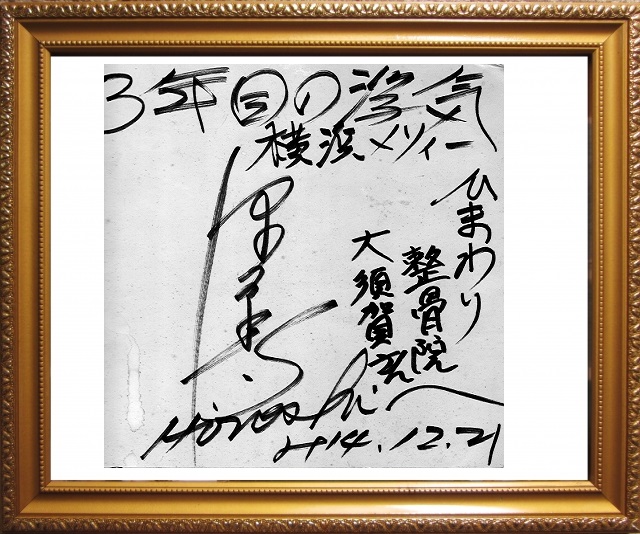 3年目の浮気
横浜メリィー
ひまわり
整骨院
大須賀
H14.12.21